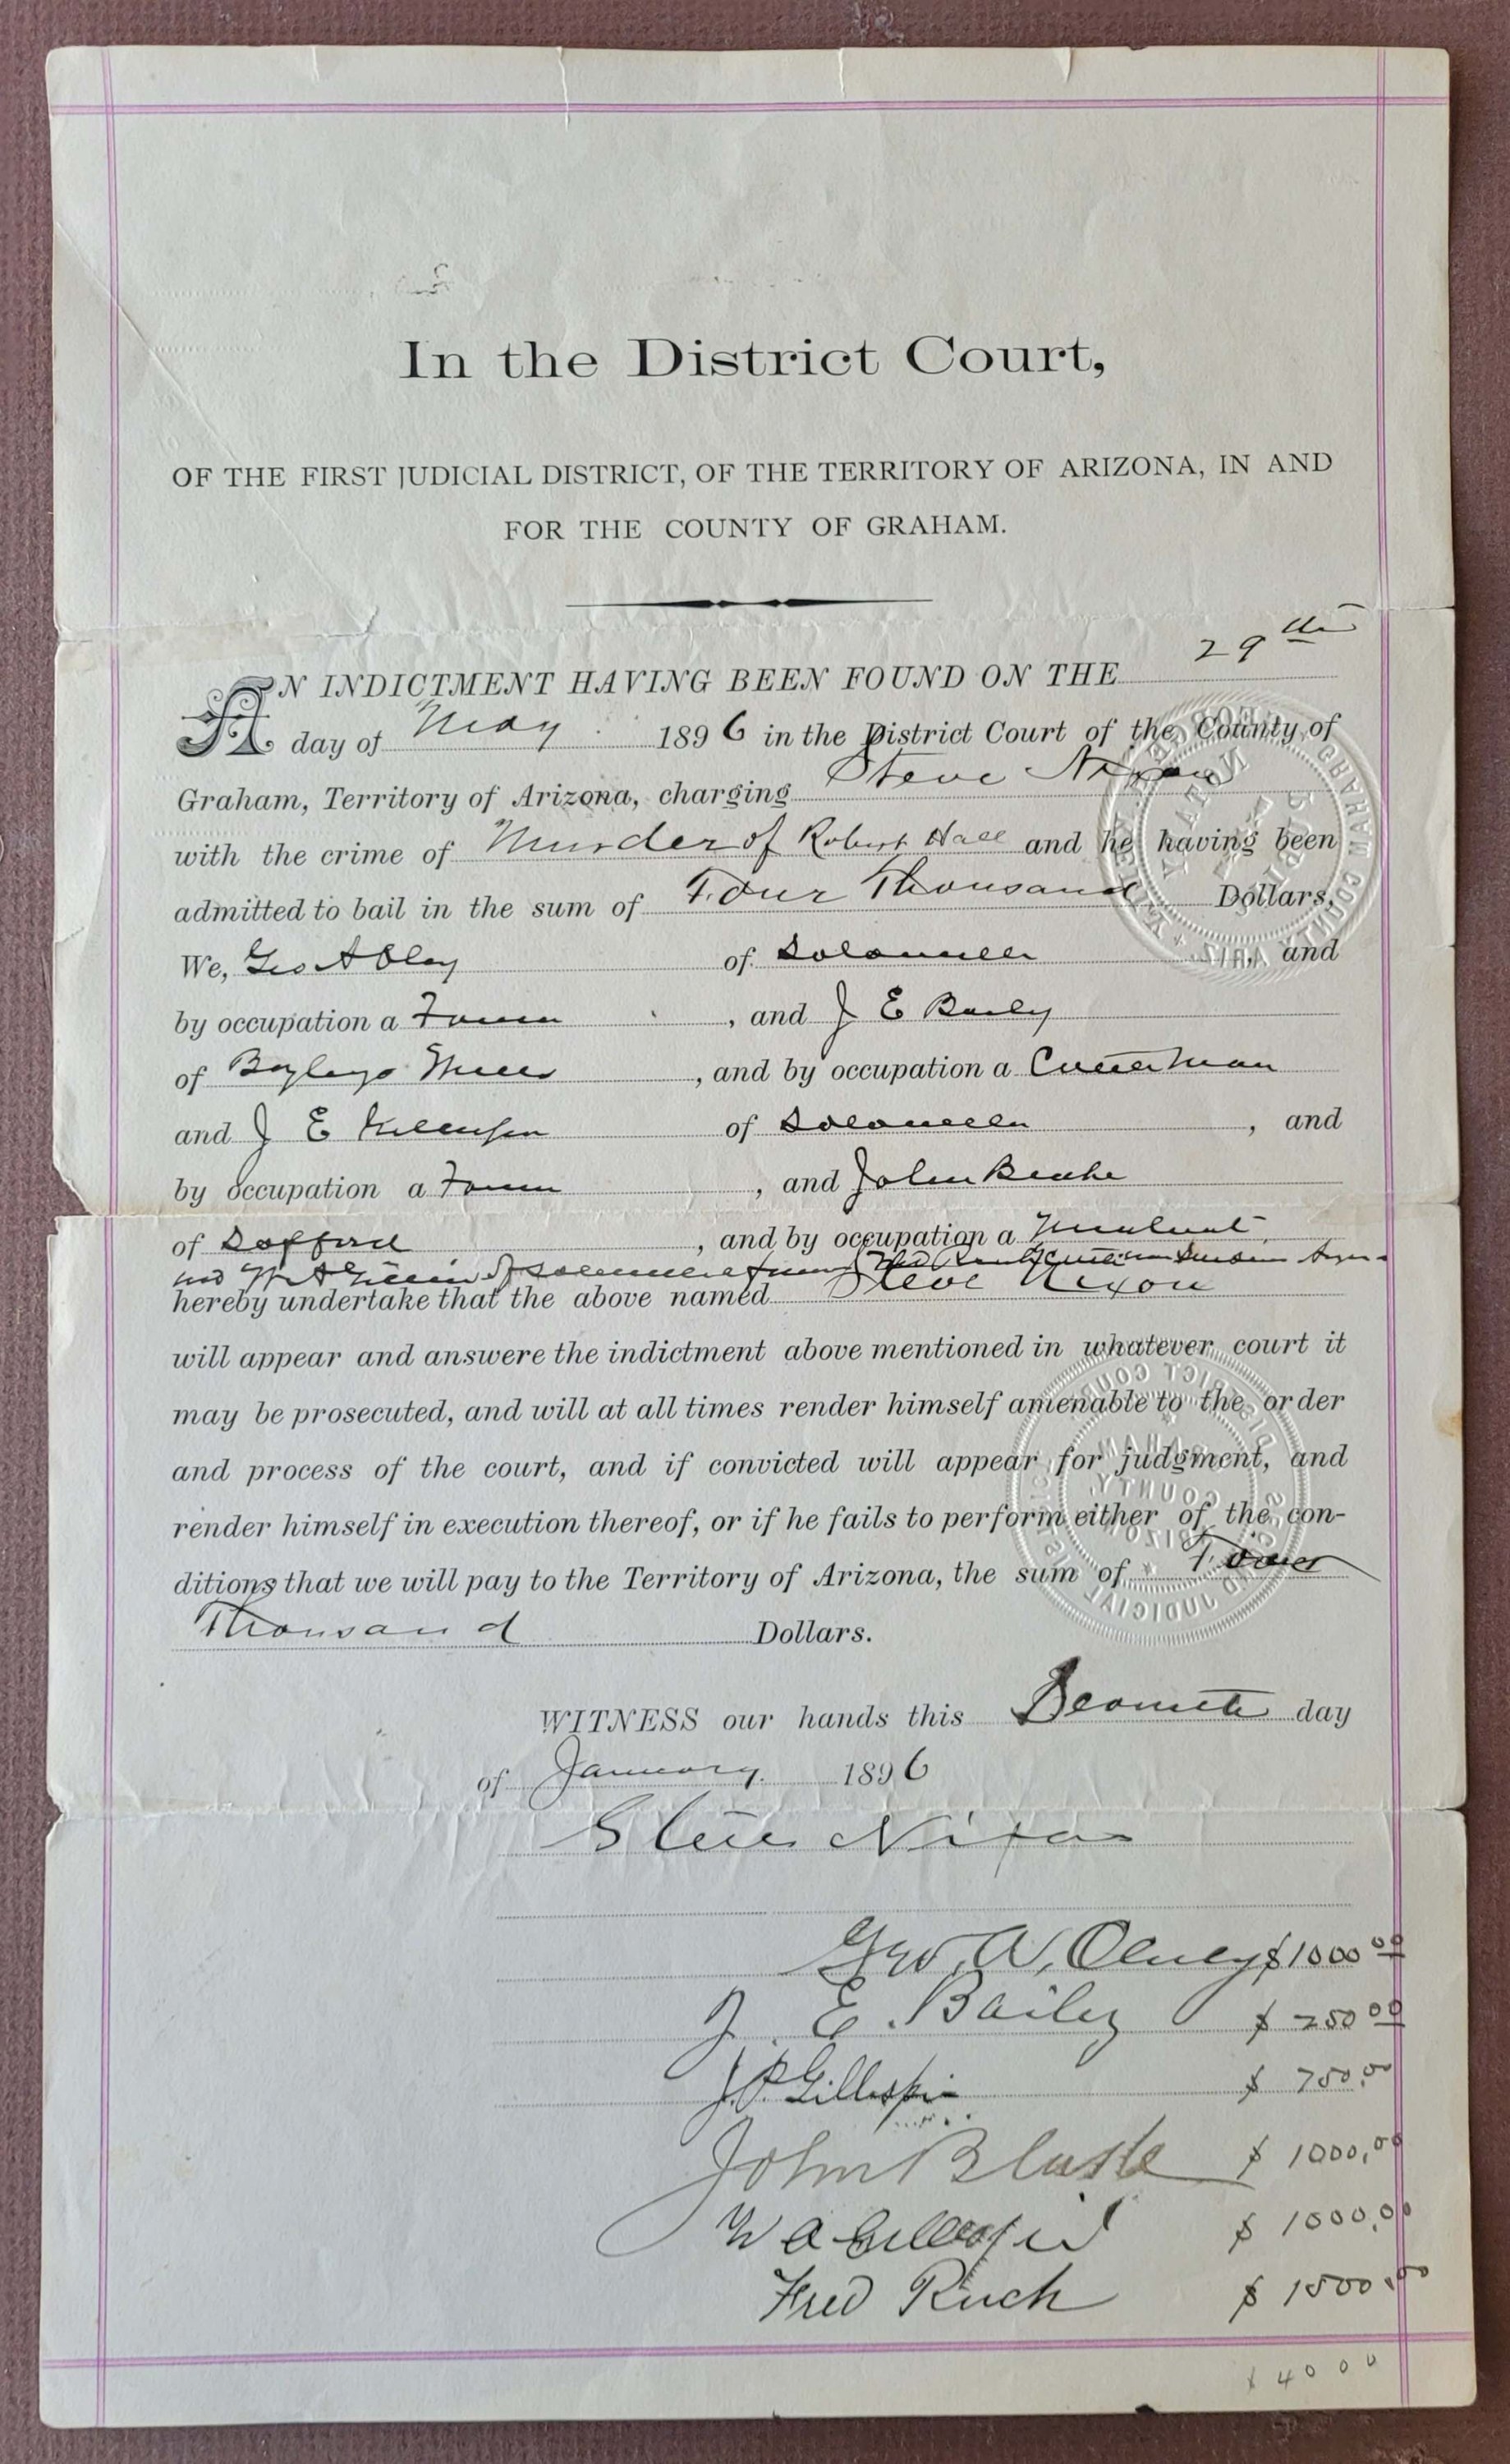 In the District Court,
OF THE FIRST JUDICIAL DISTRICT, OF THE TERRITORY OF ARIZONA, IN AND
FOR THE COUNTY OF GRAHAM.
29th
AN INDICTMENT HAVING BEEN FOUND ON THE
day of May 1896 in the District Court of the County of
Graham, Territory of Arizona, charging Steve Nixon
with the crime of Murder of Robert Hall and he having been
admitted to bail in the sum of Four Thousand Dollars,
We, Geo A Olney of Solomonville, and
by occupation a Farmer, and J E Baily
of Bayleys Wells, and by occupation a Cattleman
and J E of Solomonville, and
by occupation a Farmer, and John
of Safford, and by occupation a Merchant
and W A
hereby undertake that the above named Steve Nixon
will appear and answere the indictment above mentioned in whatever court it
may be prosecuted, and will at all times render himself amenable to the order
and process of the court, and if convicted will appear for judgment, and
render himself in execution thereof, or if he fails to perform either of the con-
ditions that we will pay to the Territory of Arizona, the sum of Four
Thousand Dollars.
WITNESS our hands this day
of January 1896
Steve Nixon
Geo. A. Olney $1000 00
J. E. Bailey $ 250 00
J. P. Gillespie $ 750.00
John Blake $ 1000.00
W A Gillespie $ 1000.00
Fred Ruch $ 1500.00
$ 4000
NOTARY PUBLIC
GRAHAM COUNTY ARIZ.
DISTRICT COURT SECOND JUDICIAL DISTRICT
GRAHAM
COUNTY
ARIZONA